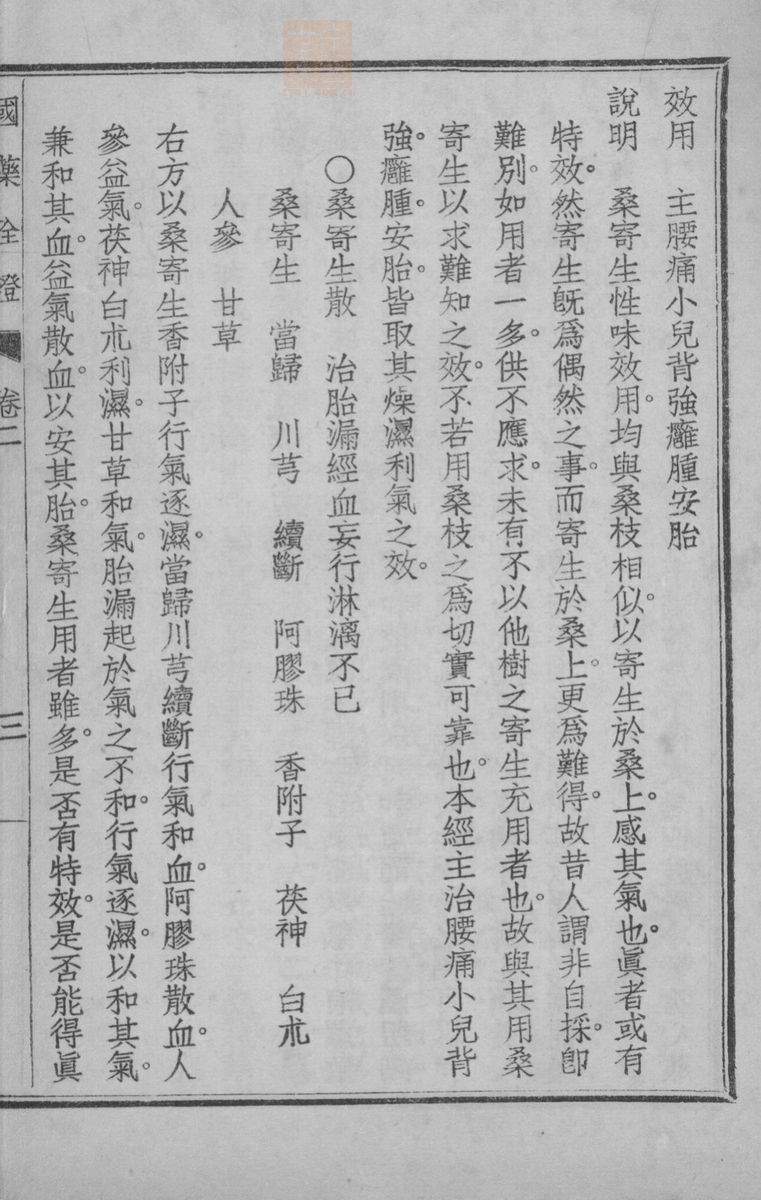 效用　主腰痛小兒背強癰腫安胎
說明　桑寄生性味效用。均與桑枝相似。以寄生於桑上。感其氣也。眞者或有
特效。然寄生旣爲偶然之事。而寄生於桑上。更爲難得。故昔人謂非自採。卽
難別。如用者一多。供不應求。未有不以他樹之寄生充用者也。故與其用桑
寄生以求難知之效。不若用桑枝之爲切實可靠也。本經主治腰痛小兒背
強。癰腫。安胎。皆取其燥濕利氣之效。
〇桑寄生散　治胎漏經血妄行淋漓不已
桑寄生　當歸　川芎　續斷　阿膠珠　香附子　茯神　白朮
人參　甘草
右方以桑寄生香附子行氣逐濕。當歸川芎續斷行氣和血。阿膠珠散血。人
參益氣。茯神白朮利濕。甘草和氣。胎漏起於氣之不和。行氣逐濕。以和其氣。
兼和其血。益氣散血。以安其胎。桑寄生用者雖多。是否有特效。是否能得眞
國藥詮證　卷二　三